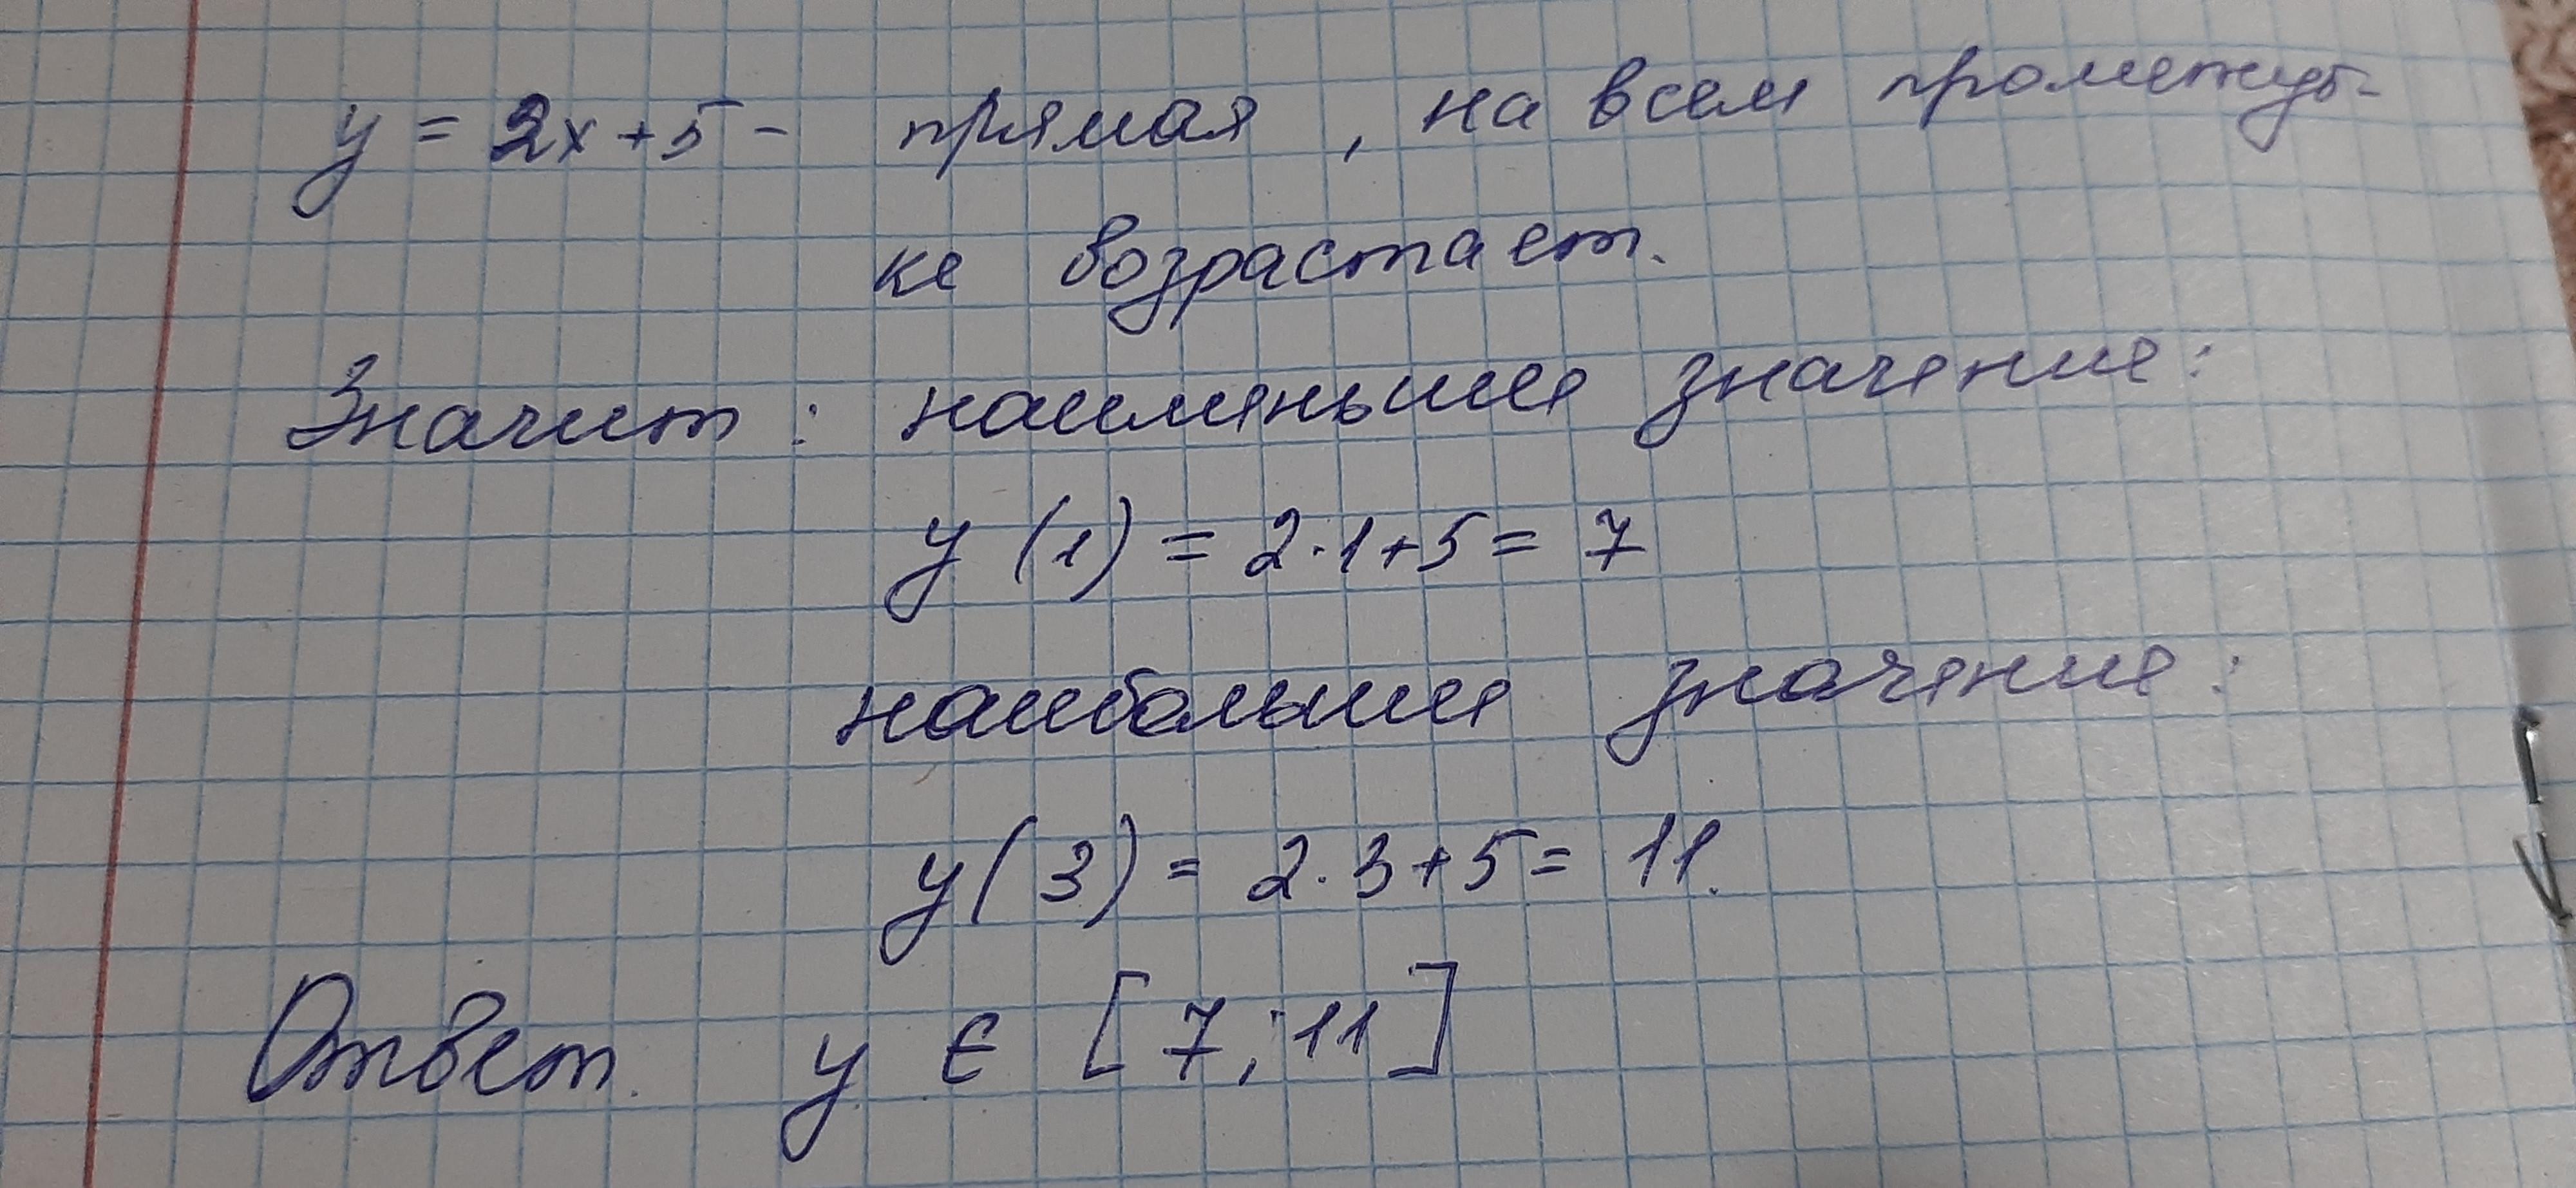 y = 2x + 5 - прямая, на всем промежут-
ке возрастает.
Значит: наименьшее значение:
y (1) = 2·1+5 = 7
наибольшее значение:
y(3) = 2·3+5 = 11.
Ответ. y ∈ [7; 11]